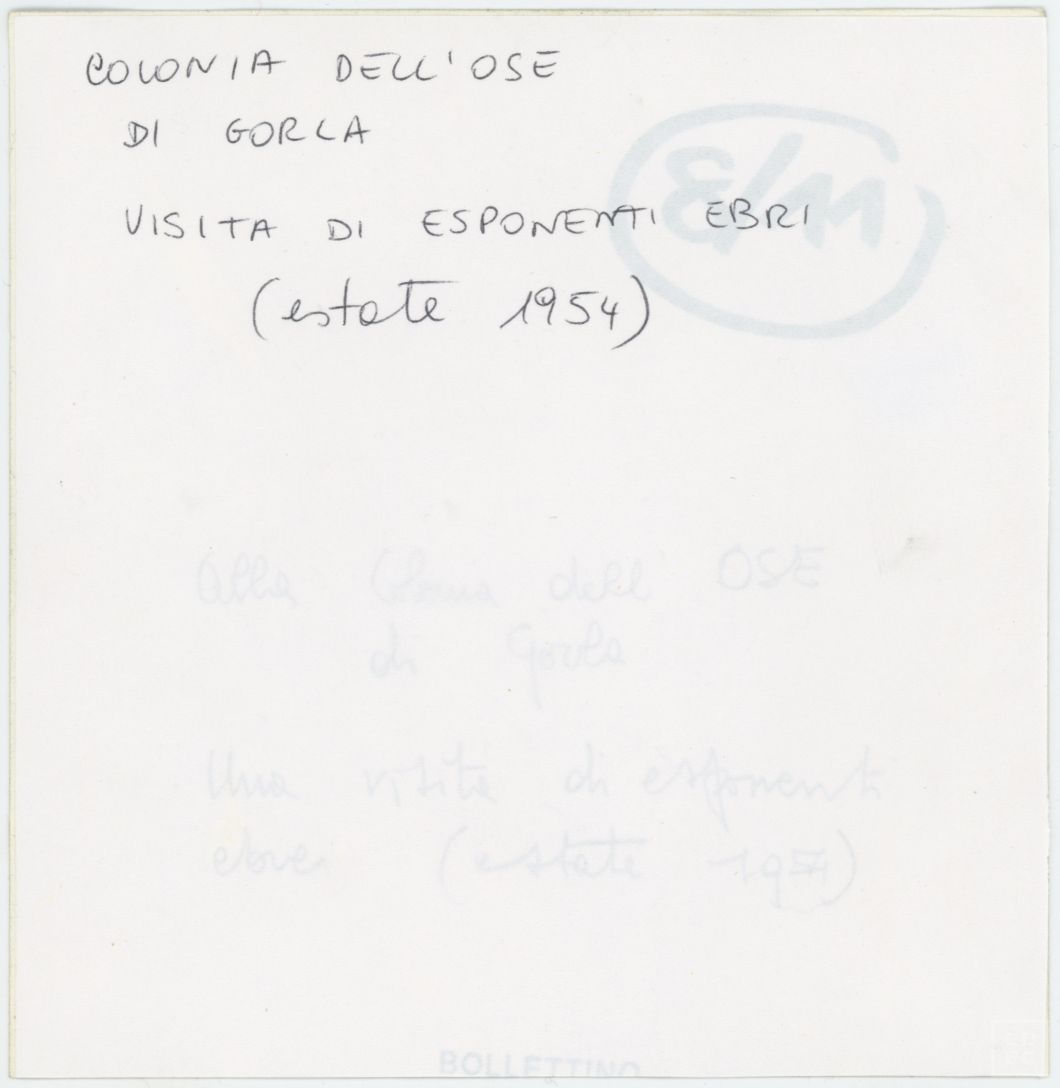 COLONIA DELL'OSE
DI GORLA
VISITA DI ESPONENTI EBRI
(estate 1954)
Alla Colonia dell' OSE
di Gorla
Una visita di esponenti
ebrei (estate
BOLLETTINO